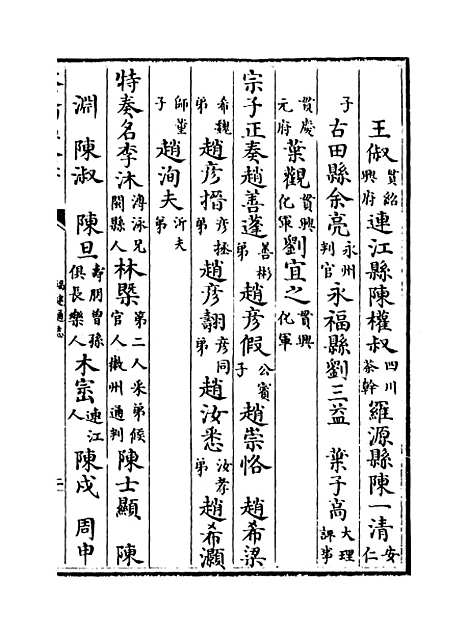 王俶貫紹興府連江縣陳權叔四川茶幹羅源縣陳一清安仁
子古田縣余亮永州判官永福縣劉三益　葉子高大理評事
貫慶元府葉觀貫興化軍劉宜之貫興化軍
宗子正奏趙善蓬善彬弟趙彦假公賓子趙崇恪　趙希梁
希魏弟趙彦搢彦拯弟趙彦翿彦同弟趙汝悉汝孝弟趙希灝
師堇子趙洵夫沂夫弟
特奏名李沐溥泳兄閩縣人林㮣第二人釆弟候官人徽州通判陳士顯　陳
淵　陳淑　陳旦壽朋曾孫俱長樂人木㝓連江人陳戍　周申
福建通志